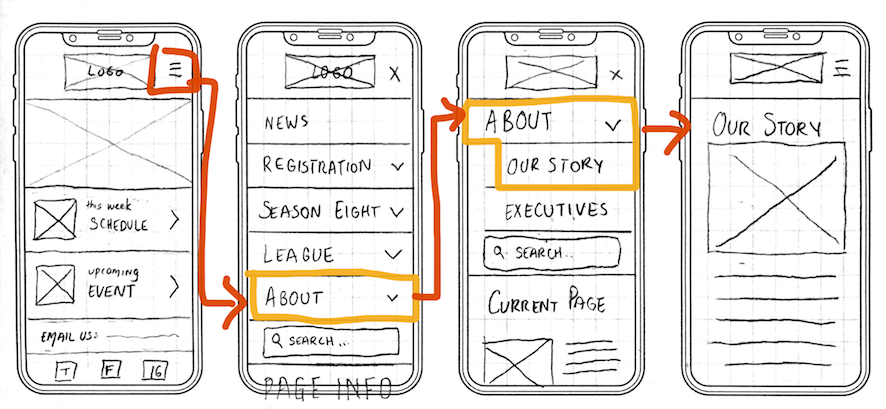 LOGO
this week
SCHEDULE
upcoming
EVENT
EMAIL US:
T F IG
LOGO X
NEWS
REGISTRATION
SEASON EIGHT
LEAGUE
ABOUT
SEARCH...
PAGE INFO
X
ABOUT
OUR STORY
EXECUTIVES
SEARCH...
CURRENT PAGE
OUR STORY